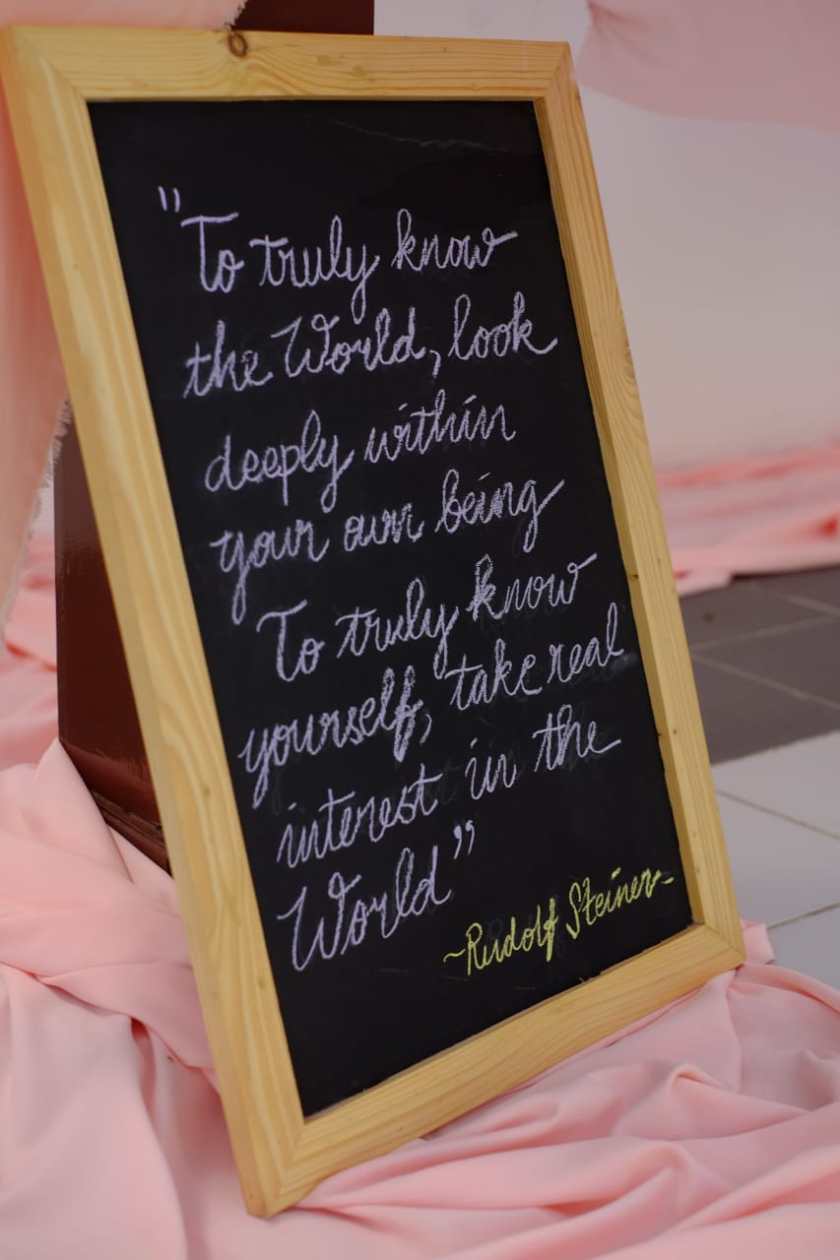 "To truly know
the World, look
deeply within
your own being
To truly know
yourself, take real
interest in the
World"
~Rudolf Steiner~